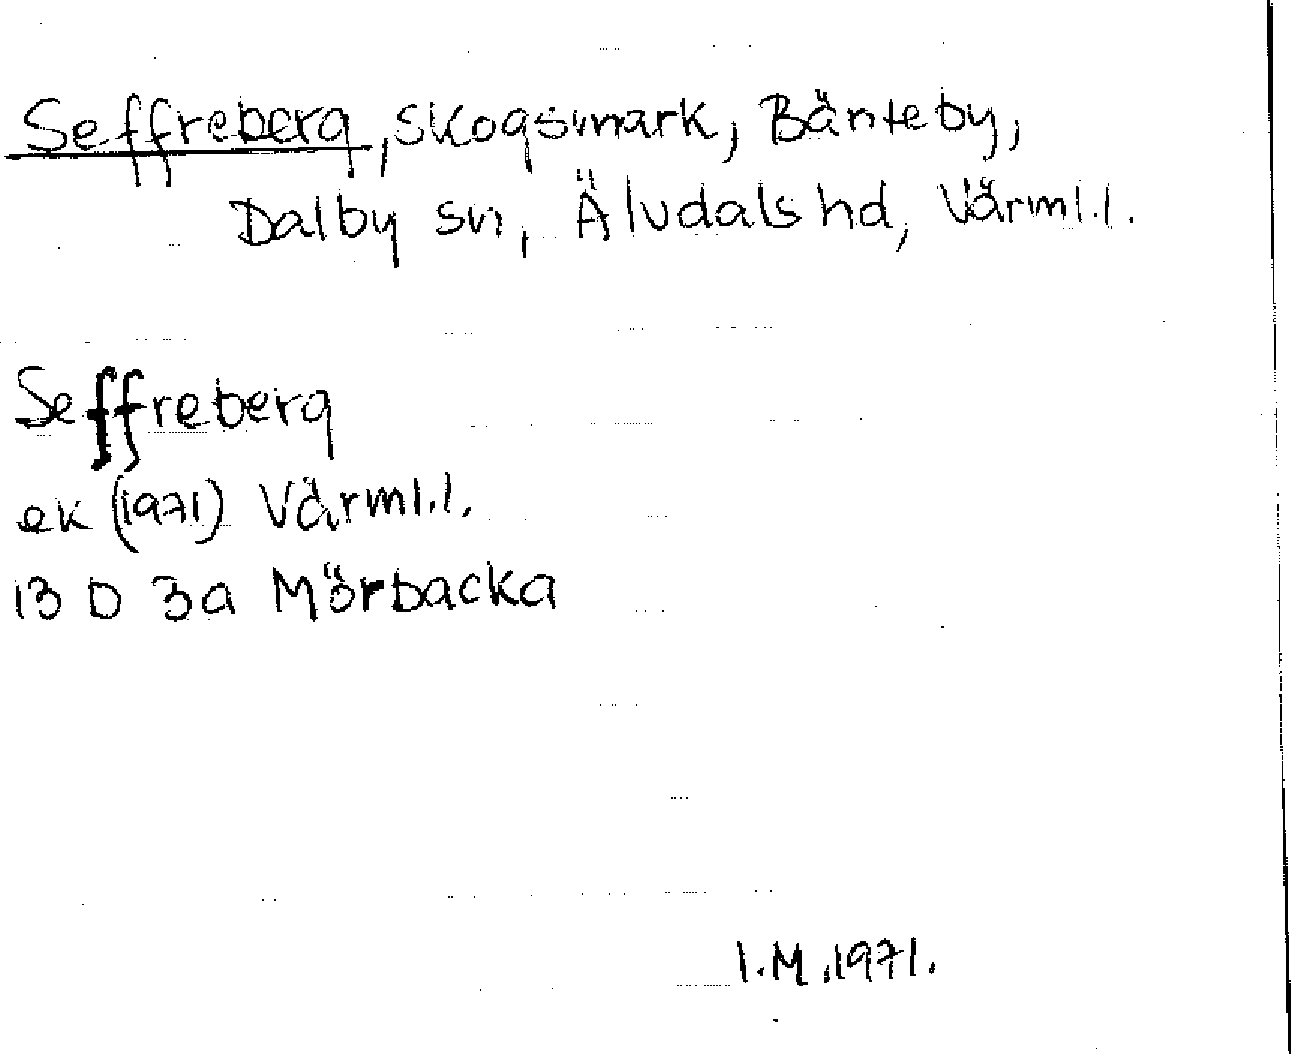 Seffreberg, skogsmark, Bänteby,
Dalby sn, Älvdals hd, Värml.l.
Seffreberg
ek (1971) Värml.l.
13 D 3a Mörbacka
I.M.1971.